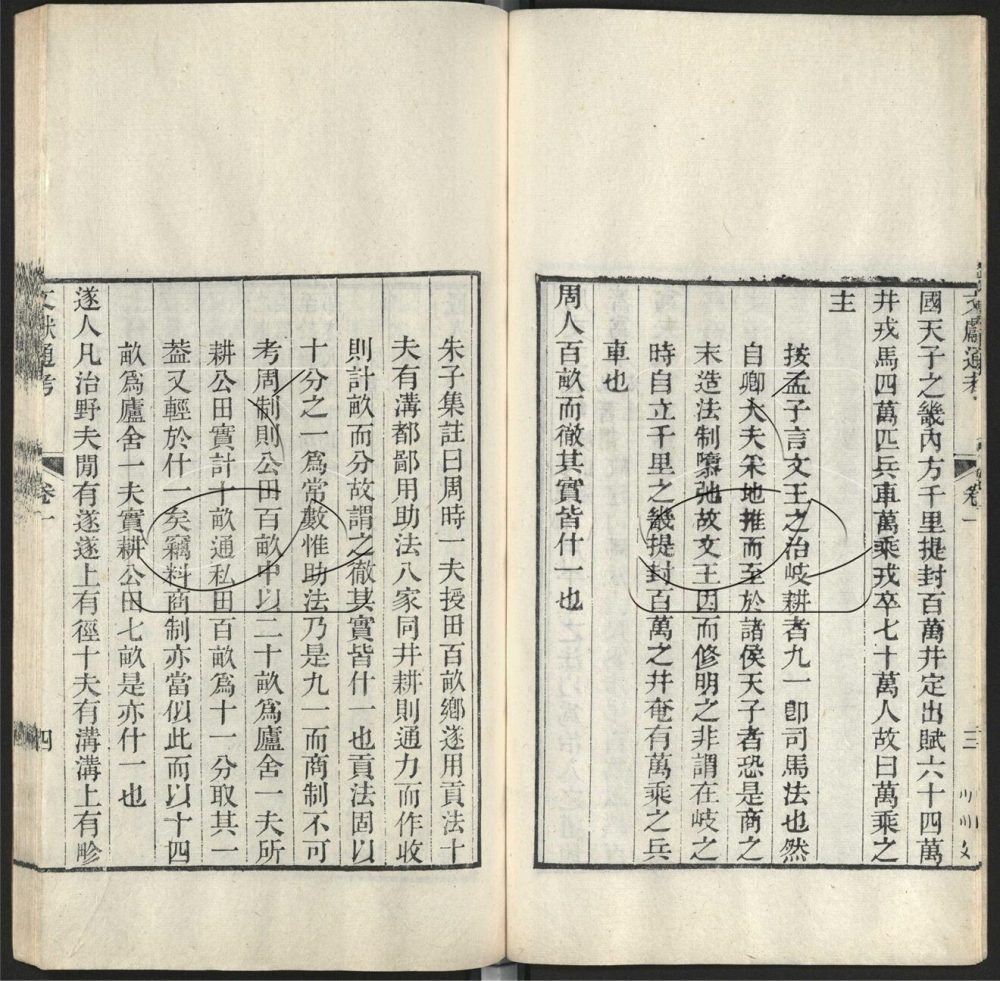 文獻通考 卷一 三
國天子之畿內方千里提封百萬井定出賦六十四萬
井戎馬四萬匹兵車萬乘戎卒七十萬人故曰萬乘之
主
按孟子言文王之治岐耕者九一卽司馬法也然
自卿大夫采地推而至於諸侯天子者恐是商之
末造法制隳弛故文王因而修明之非謂在岐之
時自立千里之畿提封百萬之井奄有萬乘之兵
車也
周人百畝而徹其實皆什一也
朱子集註曰周時一夫授田百畝鄉遂用貢法十
夫有溝都鄙用助法八家同井耕則通力而作收
則計畝而分故謂之徹其實皆什一也貢法固以
十分之一爲常數惟助法乃是九一而商制不可
考周制則公田百畝中以二十畝爲廬舍一夫所
耕公田實計十畝通私田百畝爲十一分取其一
葢又輕於什一矣竊料商制亦當似此而以十四
畝爲廬舍一夫實耕公田七畝是亦什一也
遂人凡治野夫閒有遂遂上有徑十夫有溝溝上有畛
文獻通考 卷一 四